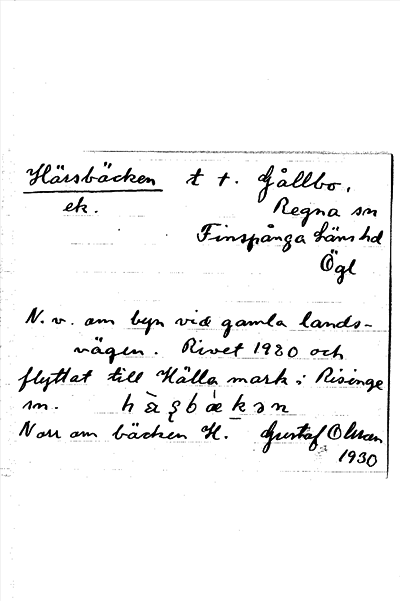 Härsbäcken t t. Gållbo,
ek. Regna sn
Finspånga läns hd
Ögl
N. v. om byn vid gamla lands-
vägen. Rivet 1920 och
flyttat till Hälla mark i Risinge
sn.
Norr om bäcken H. Gustaf Olsson
1930